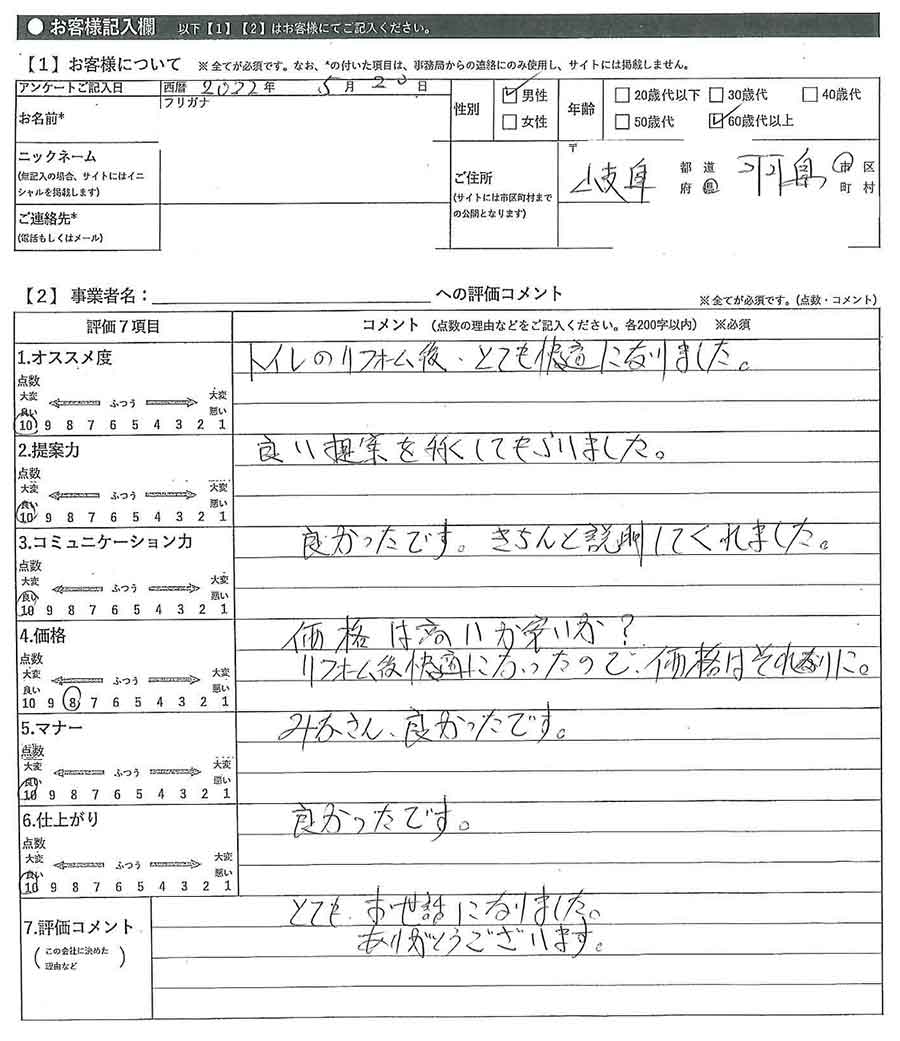 ● お客様記入欄 以下【1】【2】はお客様にてご記入ください。
【1】お客様について ※全てが必須です。なお、*の付いた項目は、事務局からの連絡にのみ使用し、サイトには掲載しません。
アンケートご記入日 西暦 2022年 5月 20日
性別 ☑男性 □女性
年齢 □20歳代以下 □30歳代 □40歳代
□50歳代 ☑60歳代以上
お名前* フリガナ
ニックネーム
(無記入の場合、サイトにはイニシャルを掲載します)
ご連絡先*
(電話もしくはメール)
ご住所
(サイトには市区町村までの公開となります)
〒
岐阜 都道府県 羽島 市区町村
【2】事業者名： への評価コメント
※全てが必須です。(点数・コメント)
評価7項目 コメント（点数の理由などをご記入ください。各200字以内） ※必須
1.オススメ度 トイレのリフォーム後、とても快適になりました。
点数
大変良い ふつう 大変悪い
10 9 8 7 6 5 4 3 2 1
2.提案力 良い提案を多くしてもらいました。
点数
大変良い ふつう 大変悪い
10 9 8 7 6 5 4 3 2 1
3.コミュニケーション力 良かったです。きちんと説明してくれました。
点数
大変良い ふつう 大変悪い
10 9 8 7 6 5 4 3 2 1
4.価格 価格は高いか安いか？
リフォーム後快適になったので、価格はそれなりに。
点数
大変良い ふつう 大変悪い
10 9 8 7 6 5 4 3 2 1
5.マナー みなさん、良かったです。
点数
大変良い ふつう 大変悪い
10 9 8 7 6 5 4 3 2 1
6.仕上がり 良かったです。
点数
大変良い ふつう 大変悪い
10 9 8 7 6 5 4 3 2 1
7.評価コメント とても、お世話になりました。
ありがとうございます。
(この会社に決めた理由など)